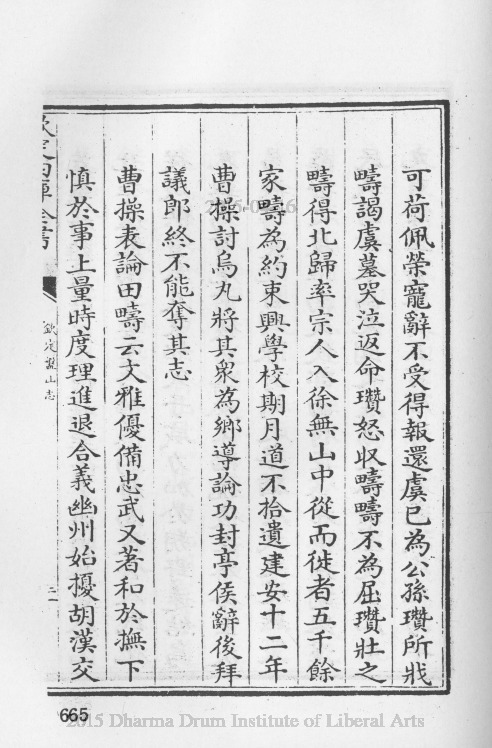 可荷佩榮寵辭不受得報還虞已為公孫瓚所戕
疇謁虞墓哭泣返命瓚怒収疇疇不為屈瓚壯之
疇得北歸率宗人入徐無山中從而徙者五千餘
家疇為約束興學校期月道不拾遺建安十二年
曹操討烏丸將其衆為鄉導論功封亭侯辭後拜
議郎終不能奪其志
曹操表論田疇云文雅優備忠武又著和於撫下
慎於事上量時度理進退合義幽州始擾胡漢交
欽定四庫全書
欽定盤山志
665
2015 Dharma Drum Institute of Liberal Arts